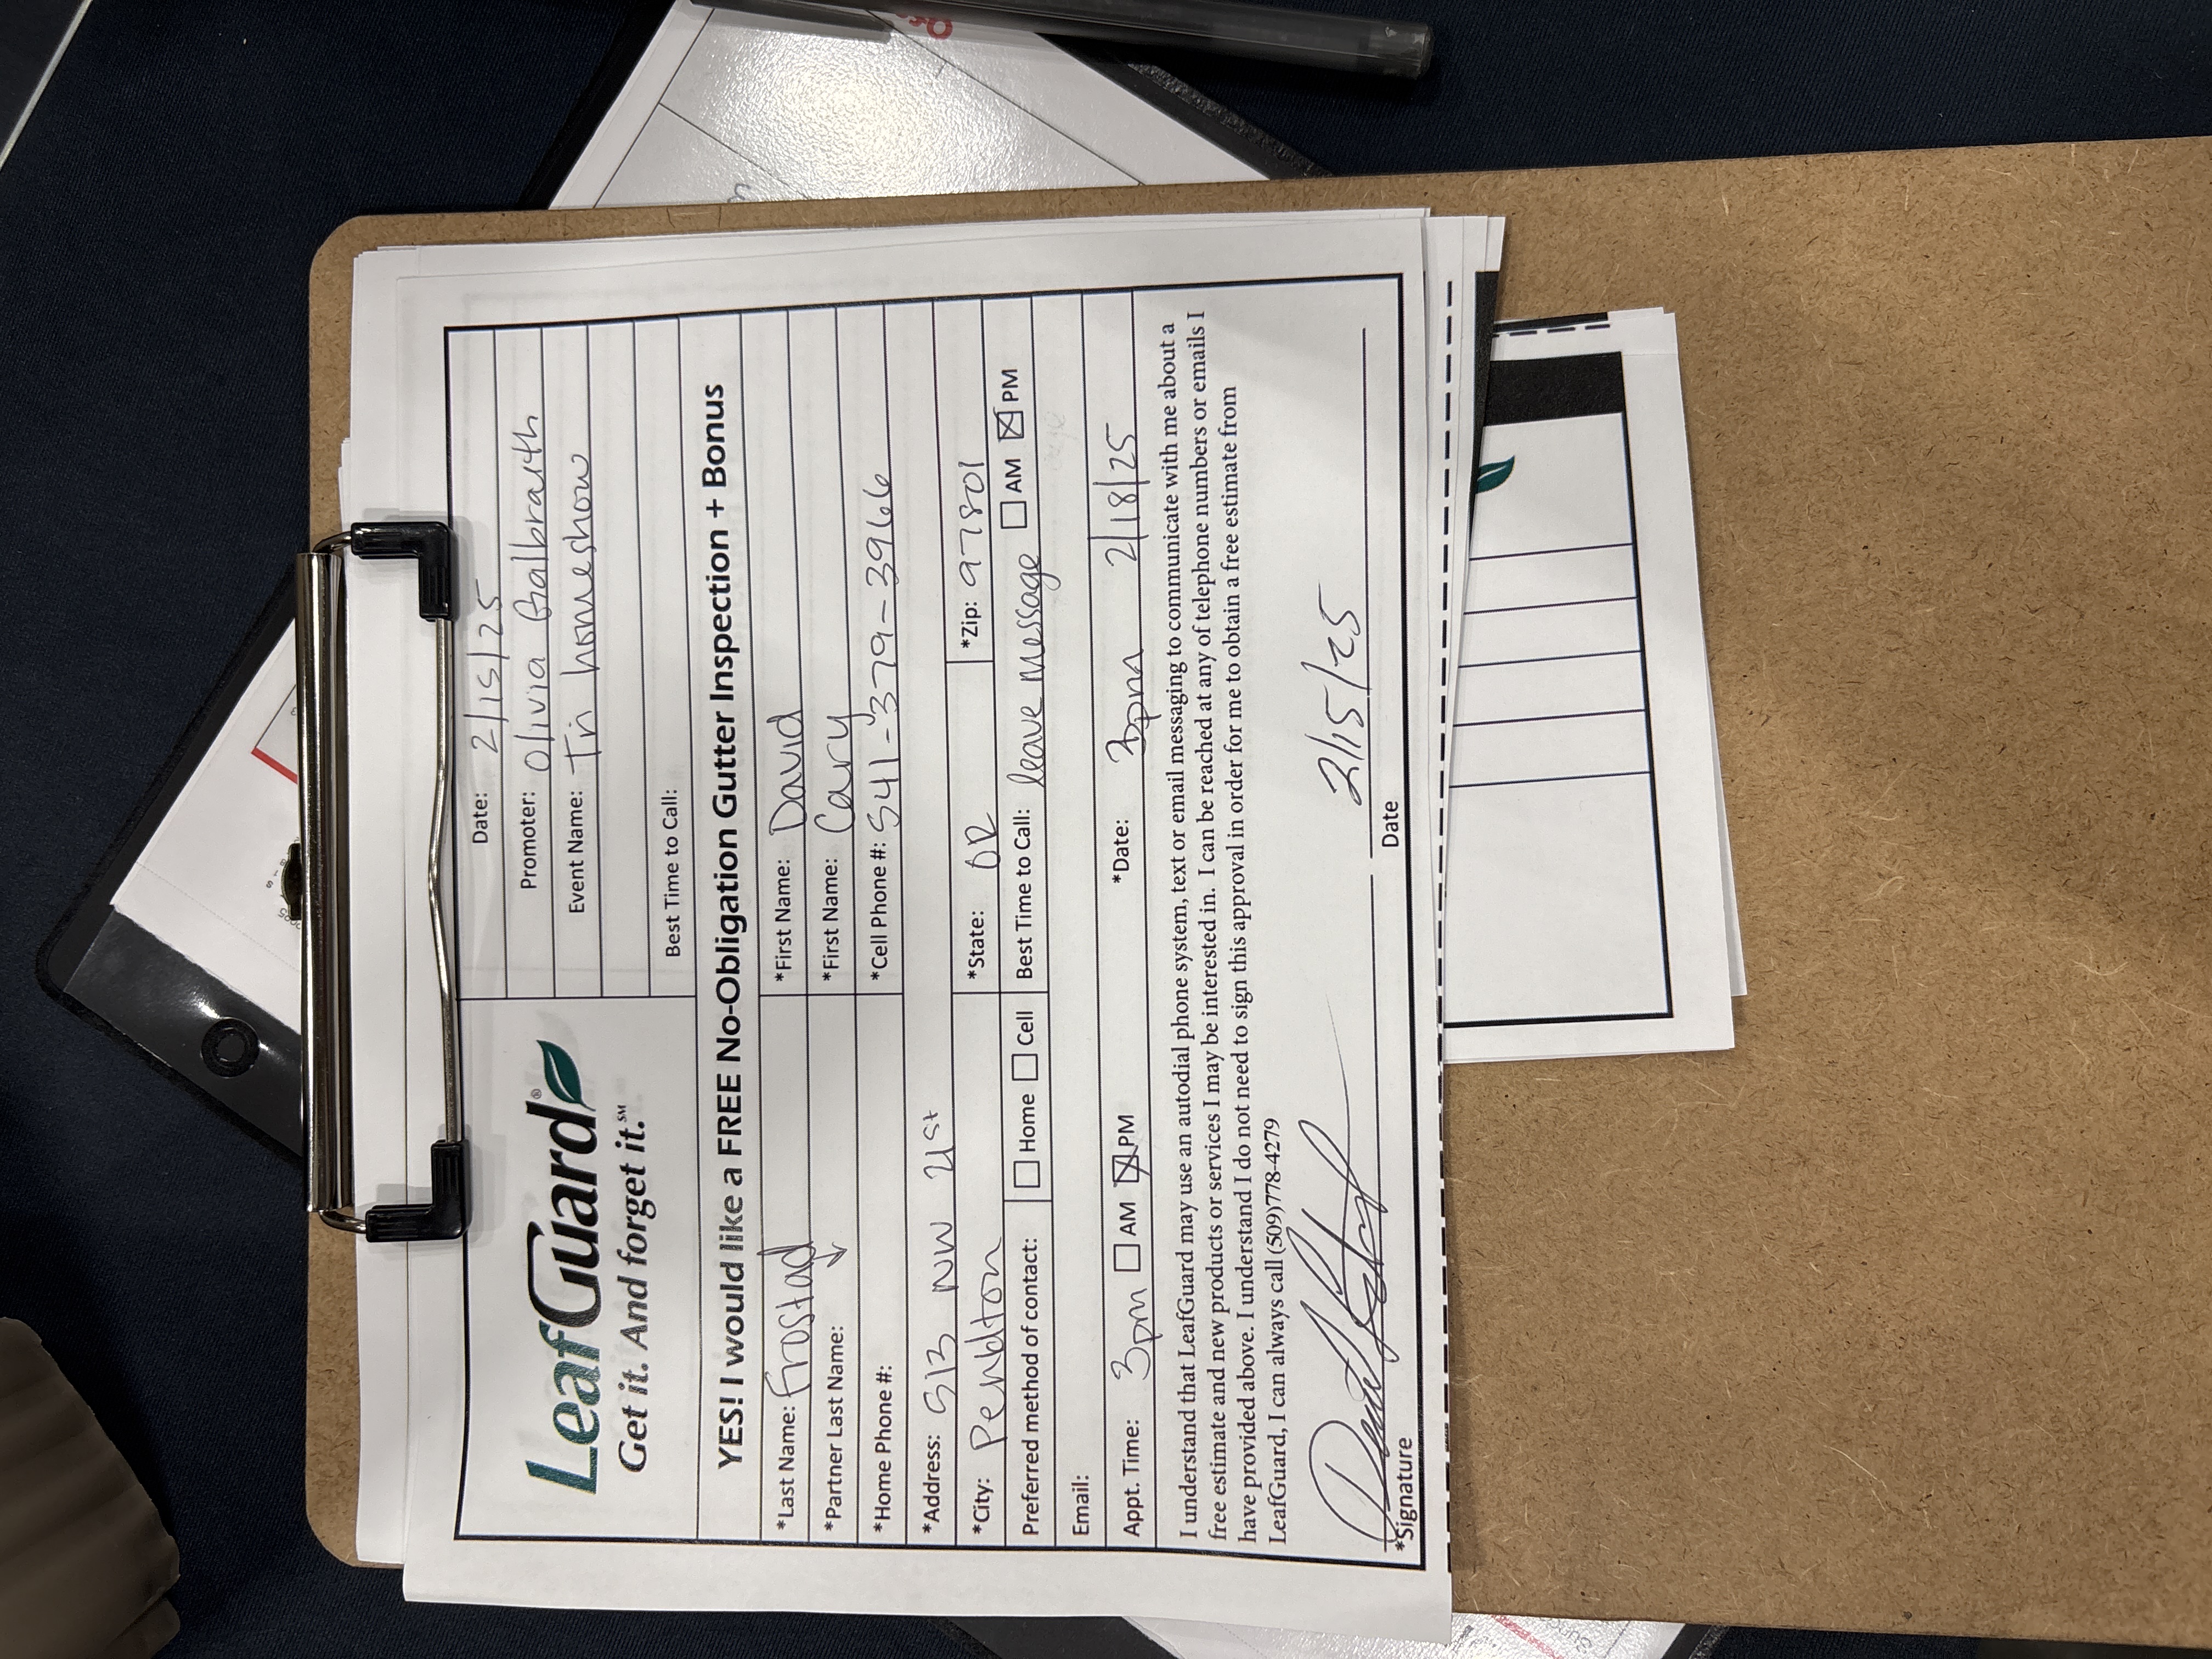 Date: 2/15/25
Promoter: Olivia Galbraith
Event Name: Tri homeshow
LeafGuard®
Get it. And forget it.℠
Best Time to Call:
YES! I would like a FREE No-Obligation Gutter Inspection + Bonus
*Last Name: Frostad *First Name: David
*Partner Last Name: ↓ *First Name: Cary
*Home Phone #: *Cell Phone #: 541-379-3966
*Address: 513 NW 21st
*City: Pendlton *State: OR *Zip: 97801
Preferred method of contact: ☐ Home ☐ Cell Best Time to Call: leave message ☐ AM ☒ PM
Email:
Appt. Time: 3pm ☐ AM ☒ PM *Date: 3pm 2/18/25
I understand that LeafGuard may use an autodial phone system, text or email messaging to communicate with me about a
free estimate and new products or services I may be interested in. I can be reached at any of telephone numbers or emails I
have provided above. I understand I do not need to sign this approval in order for me to obtain a free estimate from
LeafGuard, I can always call (509)778-4279
2/15/25
*Signature Date